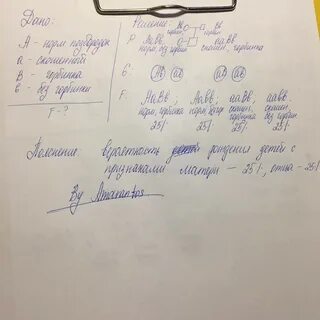 Дано:
А - норм подбородок
а - скошенный
В - горбинка
в - без горбинки
F - ?
Решение:
P: Аавв × ааВв
норм, без горбин скошен, горбинка
G: Ав ав аВ ав
F: АаВв, Аавв, ааВв, аавв.
норм, горбинка норм, без гор скошен, горбинка скошен, без горбин
25% 25% 25% 25%
Пояснение: вероятность рождения детей с
признаками матери — 25%, отца — 25%
By Amarantos